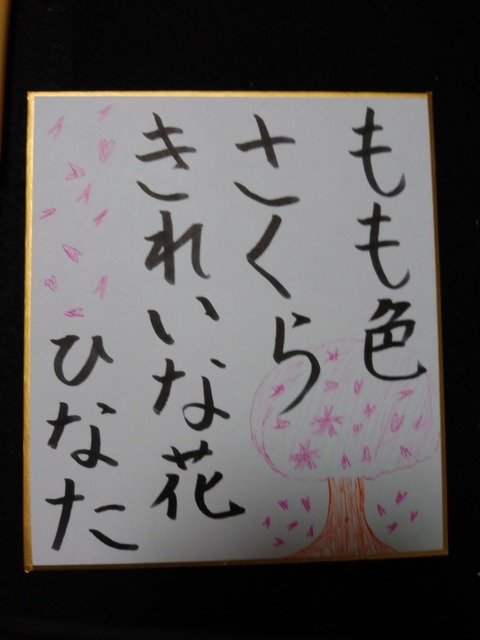 もも色
さくら
きれいな花
ひなた